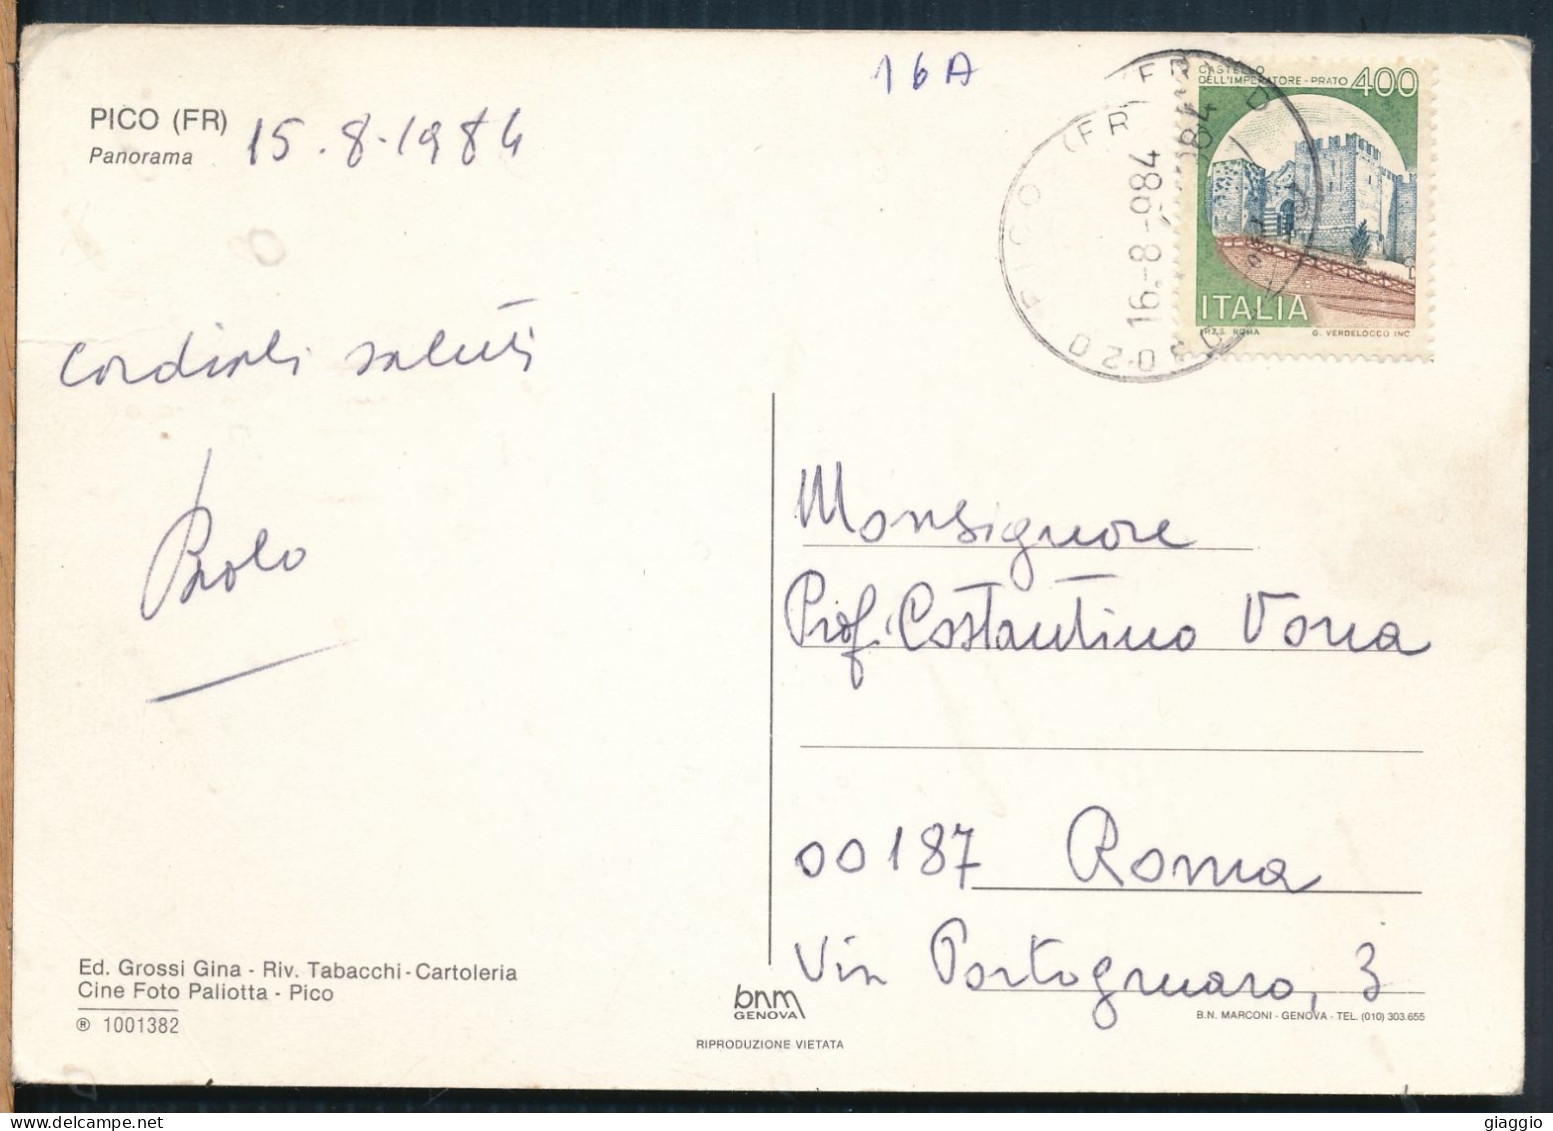 16A
PICO (FR)
Panorama
15.8.1984
CASTELLO
DELL'IMPERATORE-PRATO 400
ITALIA
I.P.Z.S. ROMA G. VERDELOCCO INC.
PICO (FR)
16.-8-984
03020
cordiali saluti
Paolo
Monsignore
Prof. Costantino Vona
00187 Roma
Via Portogruaro, 3
Ed. Grossi Gina - Riv. Tabacchi - Cartoleria
Cine Foto Paliotta - Pico
® 1001382
bnm
GENOVA
B.N. MARCONI - GENOVA - TEL. (010) 303.655
RIPRODUZIONE VIETATA
giaggio